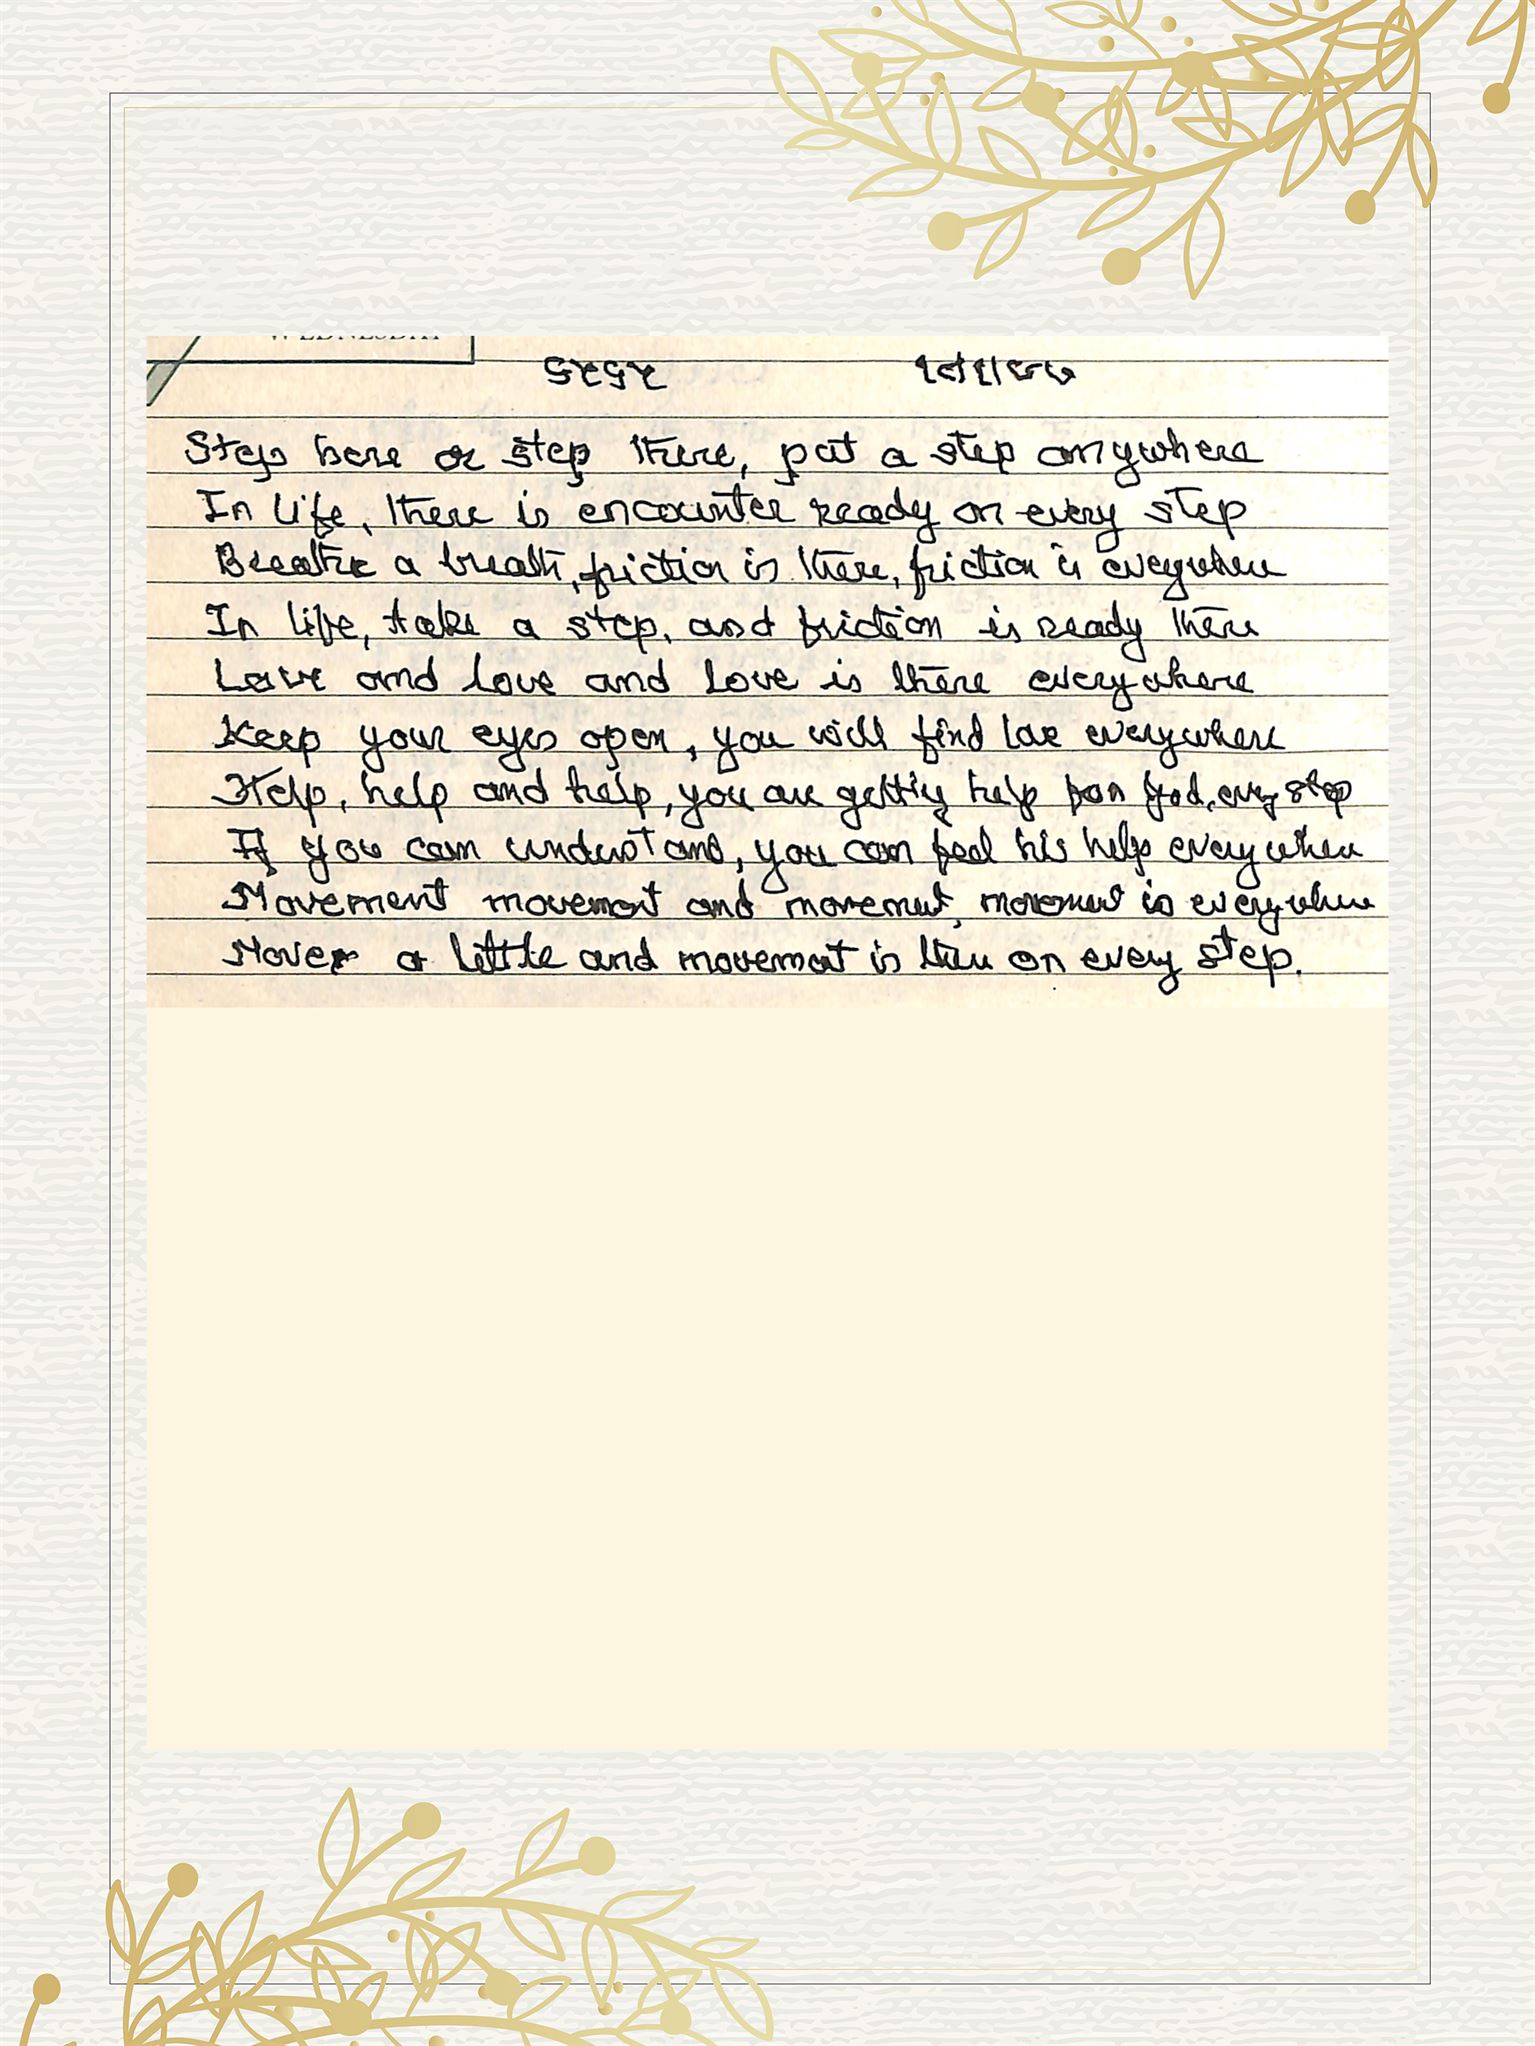 WEDNESDAY
Step here or step there, put a step anywhere
In life, there is encounter ready on every step
Breathe a breath, friction is there, friction is everywhere
In life, take a step, and friction is ready there
Love and love and love is there everywhere
Keep your eyes open, you will find love everywhere
Help, help and help, you are getting help from God, every step
If you can understand, you can feel his help everywhere
Movement movement and movement, movement is everywhere
Move a little and movement is there on every step.